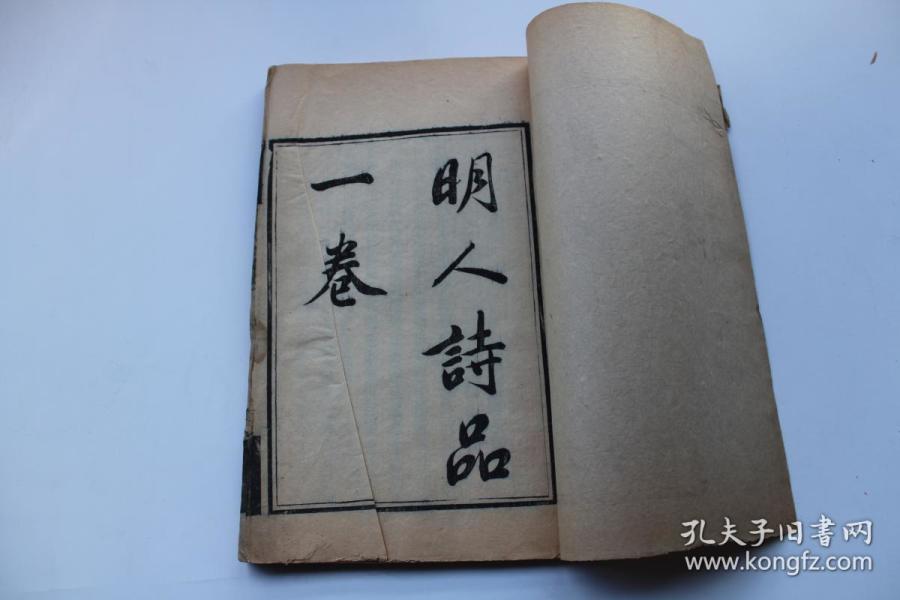 明人詩品
一卷
孔夫子旧書网
www.kongfz.com